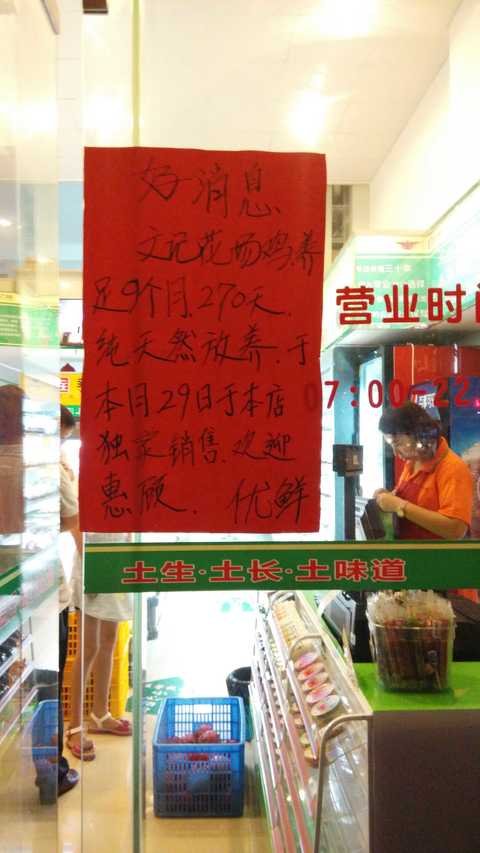 好消息
文记花场鸡养
足9个月.270天.
纯天然放养.于
本月29日于本店
独家销售.欢迎
惠顾. 优鲜
营业时间
07:00-22
土生·土长·土味道